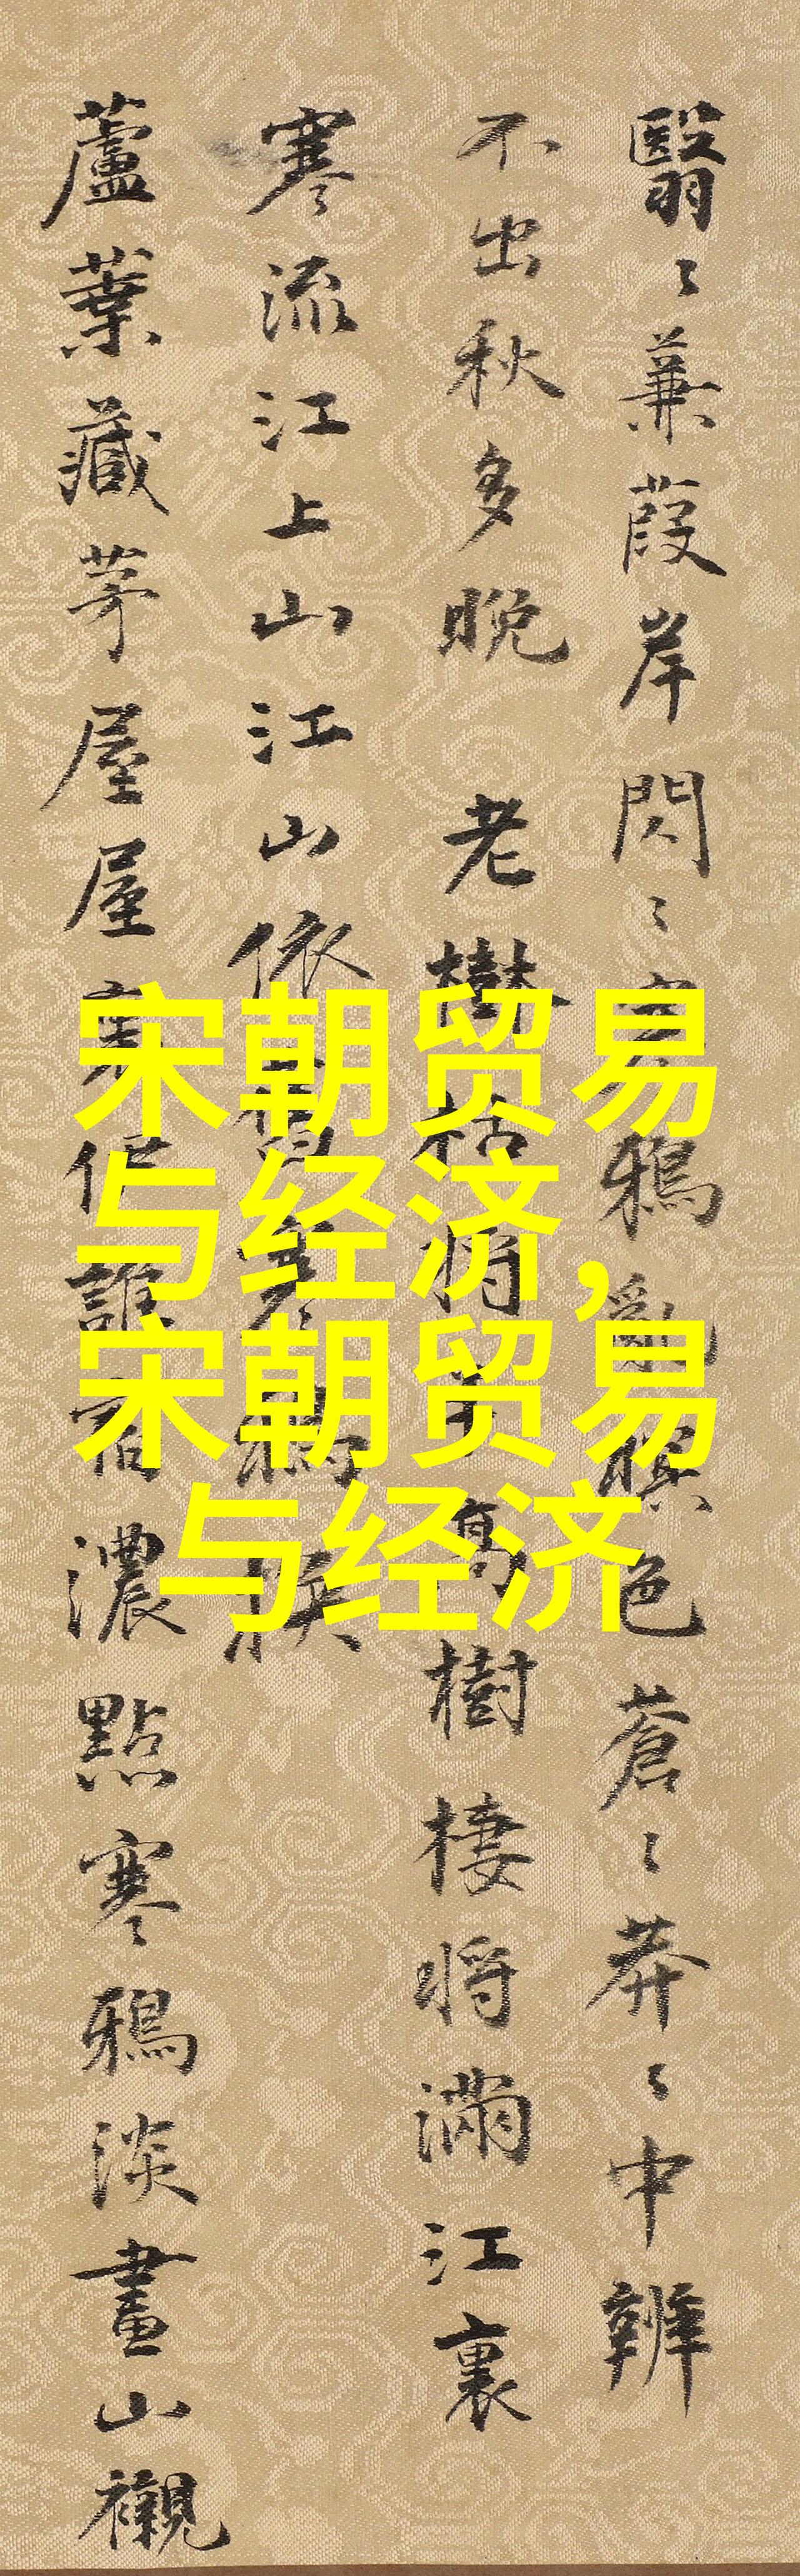 翳〻蒹葭岸閃〻寒鴉亂暝色蒼〻莽〻中辨
不出秋多晚 老樹枯將 高樹棲將滿江裏
寒流江上山江山依舊寒鴉
蘆葉藏茅屋屋裏伊誰宿濃點寒鴉淡畫山襯
宋朝贸易
与经济,
宋朝贸易
与经济